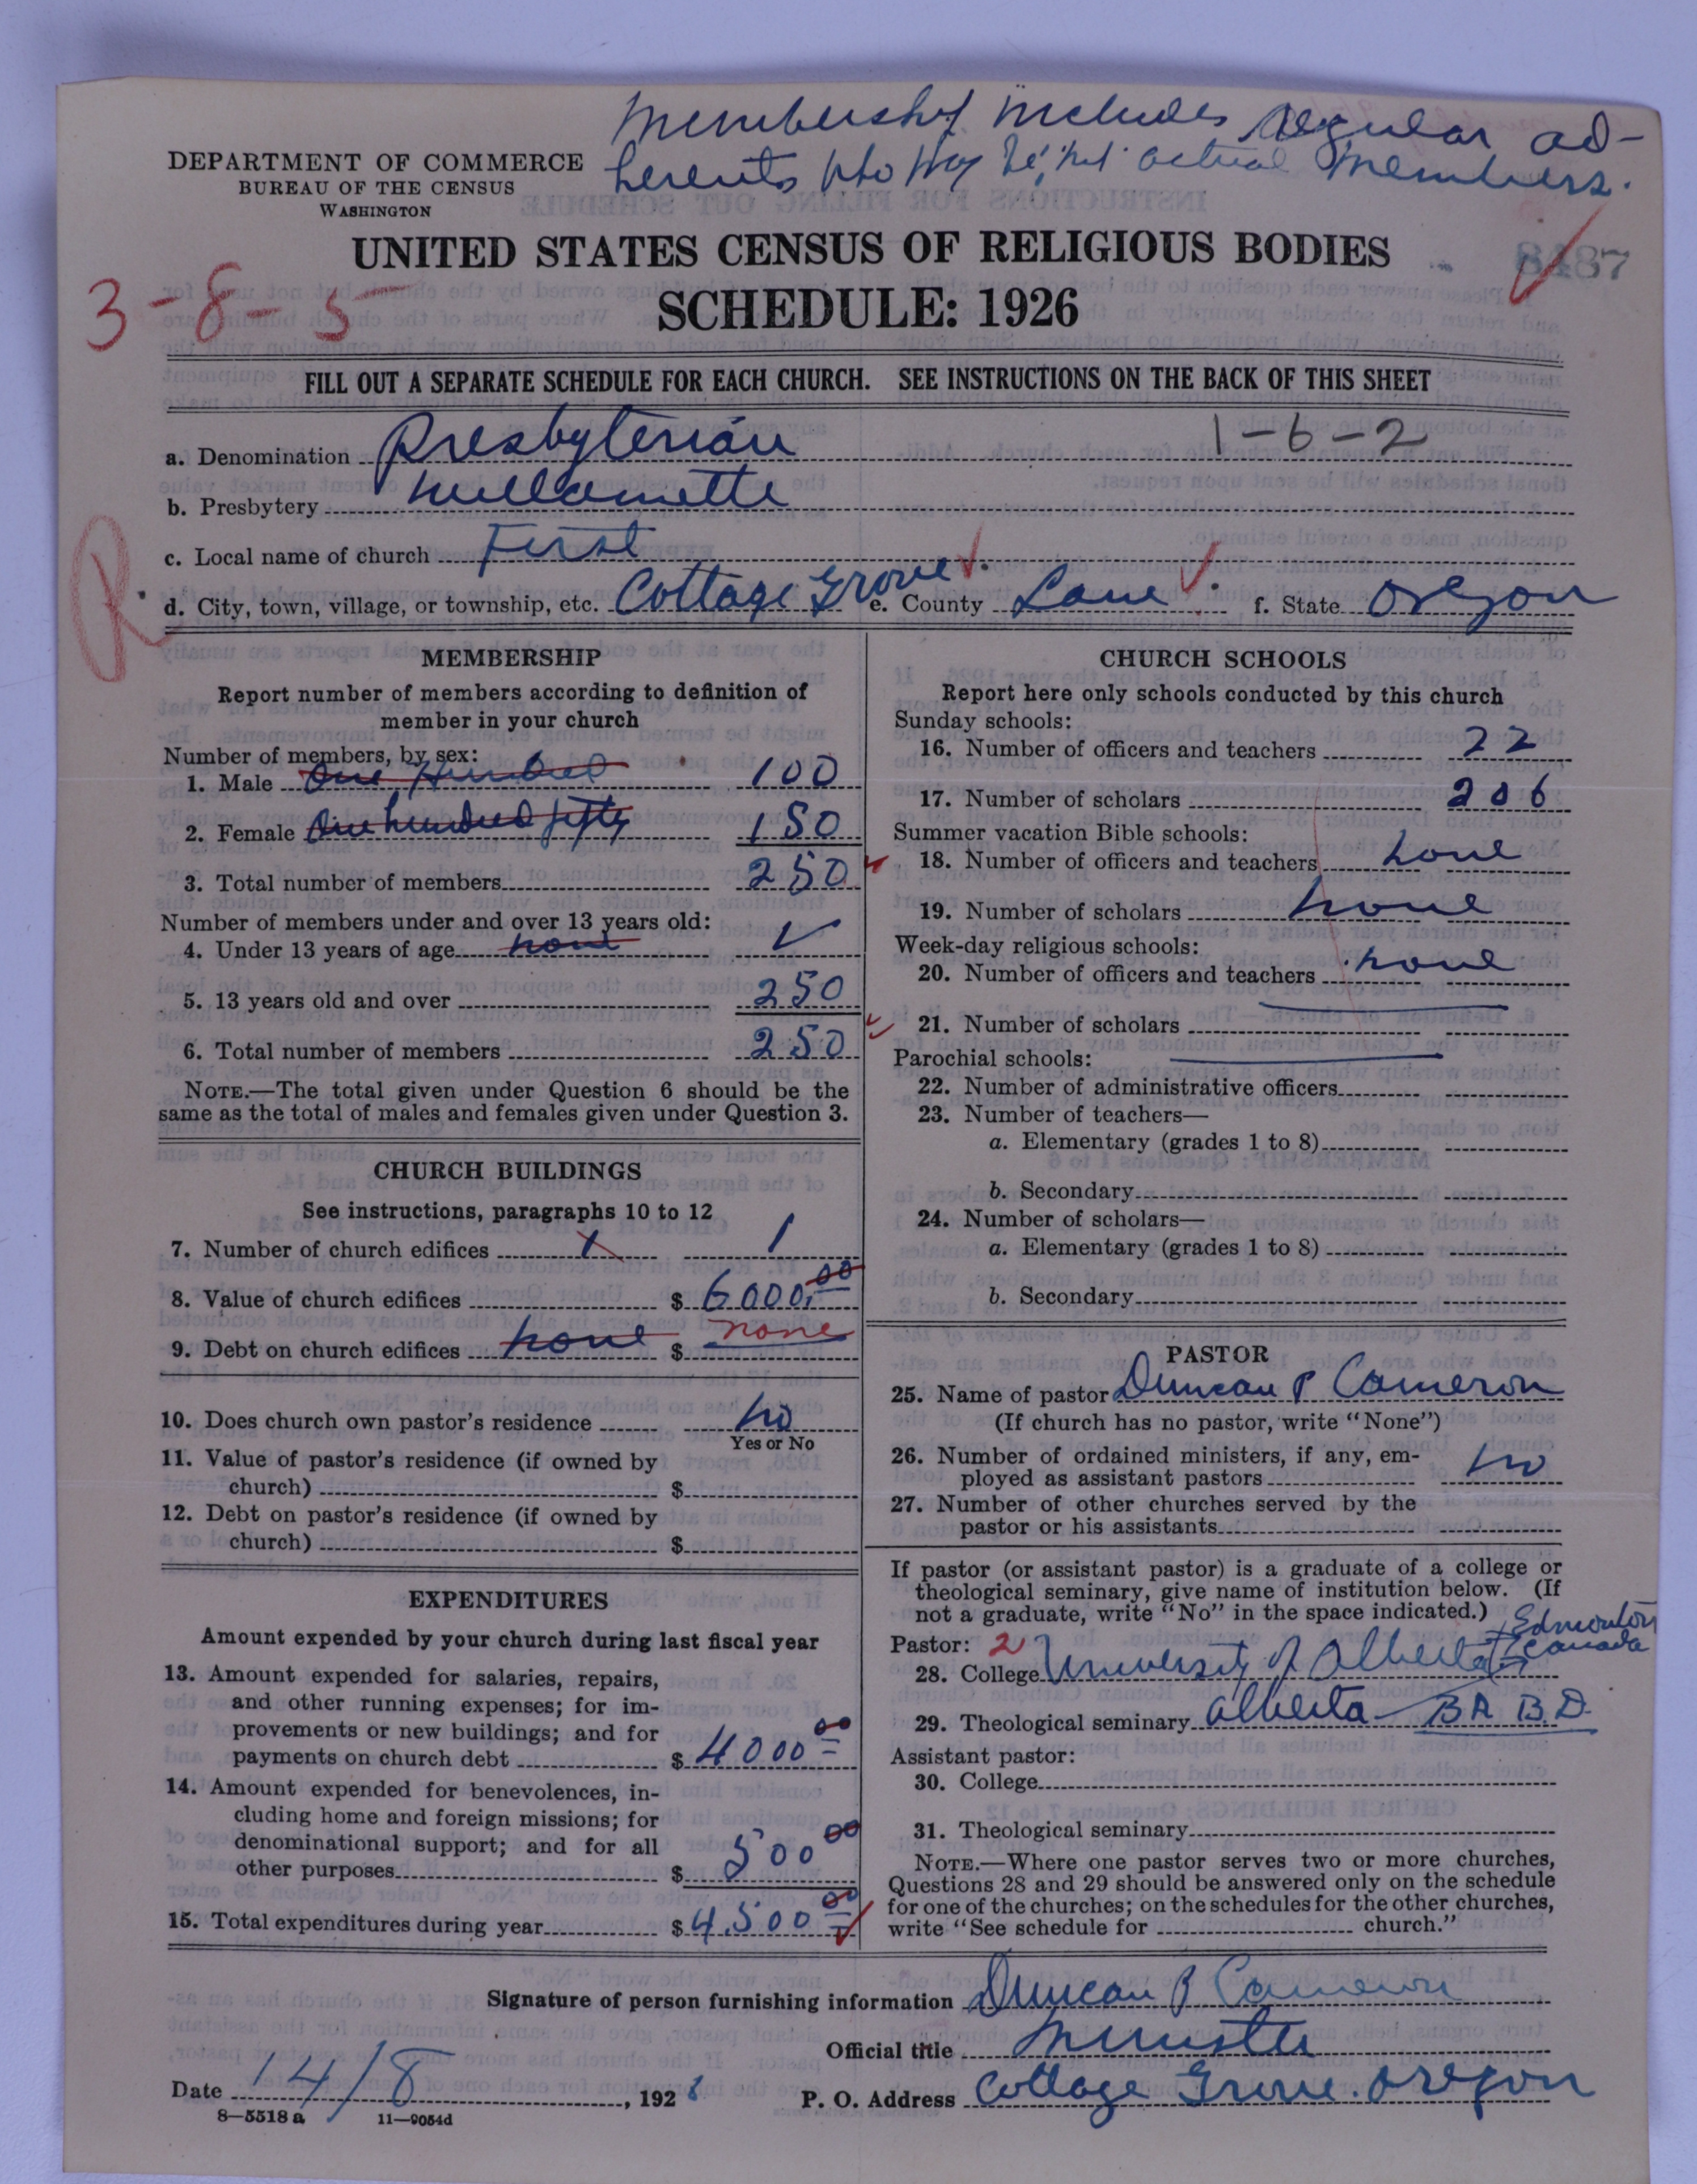 Membership includes regular ad-
herents who may be not actual members.
DEPARTMENT OF COMMERCE
BUREAU OF THE CENSUS
WASHINGTON
UNITED STATES CENSUS OF RELIGIOUS BODIES
8487
3-8-5
SCHEDULE: 1926
FILL OUT A SEPARATE SCHEDULE FOR EACH CHURCH. SEE INSTRUCTIONS ON THE BACK OF THIS SHEET
1-6-2
a. Denomination Presbyterian
b. Presbytery Willamette
c. Local name of church First
R
d. City, town, village, or township, etc. Cottage Grove. e. County Lane f. State Oregon
MEMBERSHIP
Report number of members according to definition of
member in your church
Number of members, by sex:
1. Male One Hundred 100
2. Female One hundred fifty 150
3. Total number of members 250
Number of members under and over 13 years old:
4. Under 13 years of age none ✓
5. 13 years old and over 250
6. Total number of members 250
NOTE.—The total given under Question 6 should be the
same as the total of males and females given under Question 3.
CHURCH BUILDINGS
See instructions, paragraphs 10 to 12
7. Number of church edifices 1 1
8. Value of church edifices $ 6000.00
9. Debt on church edifices none $ none
10. Does church own pastor's residence no
Yes or No
11. Value of pastor's residence (if owned by
church) $
12. Debt on pastor's residence (if owned by
church) $
EXPENDITURES
Amount expended by your church during last fiscal year
13. Amount expended for salaries, repairs,
and other running expenses; for im-
provements or new buildings; and for
payments on church debt $ 4000 00
14. Amount expended for benevolences, in-
cluding home and foreign missions; for
denominational support; and for all
other purposes $ 500 00
15. Total expenditures during year $ 4500 00
CHURCH SCHOOLS
Report here only schools conducted by this church
Sunday schools:
16. Number of officers and teachers 22
17. Number of scholars 206
Summer vacation Bible schools:
18. Number of officers and teachers none
19. Number of scholars none
Week-day religious schools:
20. Number of officers and teachers none
21. Number of scholars
Parochial schools:
22. Number of administrative officers
23. Number of teachers—
a. Elementary (grades 1 to 8)
b. Secondary
24. Number of scholars—
a. Elementary (grades 1 to 8)
b. Secondary
PASTOR
25. Name of pastor Duncan P Cameron
(If church has no pastor, write "None")
26. Number of ordained ministers, if any, em-
ployed as assistant pastors no
27. Number of other churches served by the
pastor or his assistants
If pastor (or assistant pastor) is a graduate of a college or
theological seminary, give name of institution below. (If
not a graduate, write "No" in the space indicated.)
Edmonton
Canada
Pastor: 2
28. College University of Alberta
29. Theological seminary Alberta — BA B.D.
Assistant pastor:
30. College
31. Theological seminary
NOTE.—Where one pastor serves two or more churches,
Questions 28 and 29 should be answered only on the schedule
for one of the churches; on the schedules for the other churches,
write "See schedule for church."
Signature of person furnishing information Duncan P Cameron
Official title Minister
Date 14/8, 192 P. O. Address Cottage Grove. Oregon
8—5518 a 11—9054d